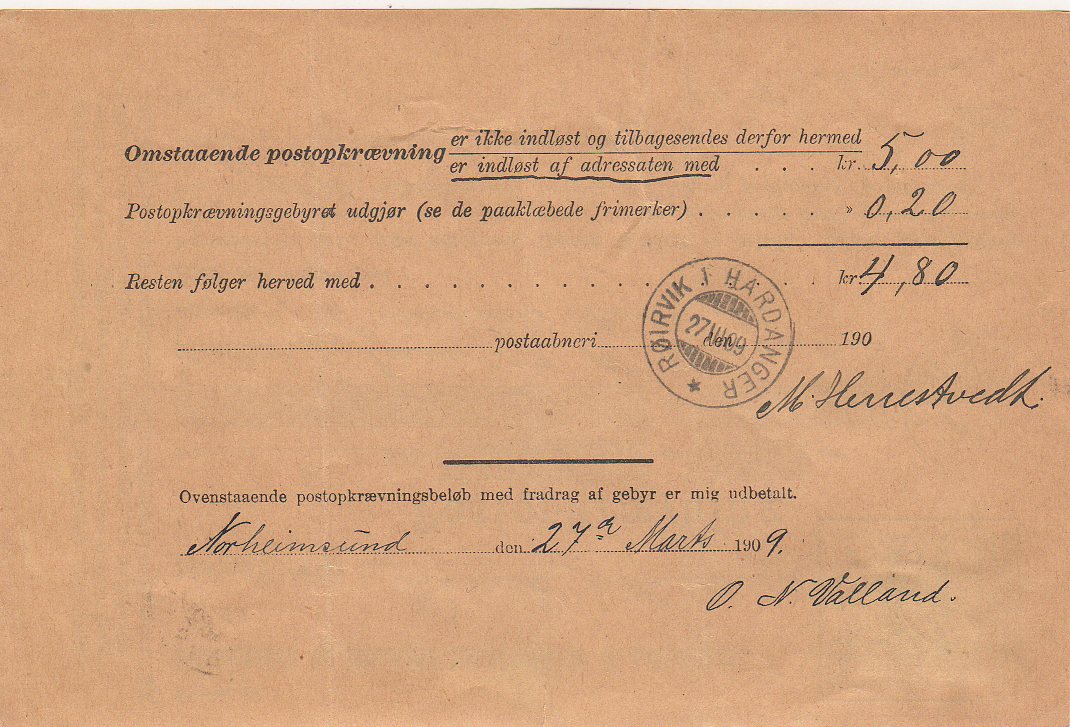 er ikke indløst og tilbagesendes derfor hermed
Omstaaende postopkrævning er indløst af adressaten med . . . kr. 5,00
Postopkrævningsgebyret udgjør (se de paaklæbede frimerker) . . . . . . » 0,20
Resten følger herved med . . . . . . . . . . . . . . . kr 4,80
postaabneri den 190
RØIRVIK I HARDANGER
27 III 09
M. Herrestvedt.
Ovenstaaende postopkrævningsbeløb med fradrag af gebyr er mig udbetalt.
Norheimsund den 27de Marts 1909.
O. N. Valland.